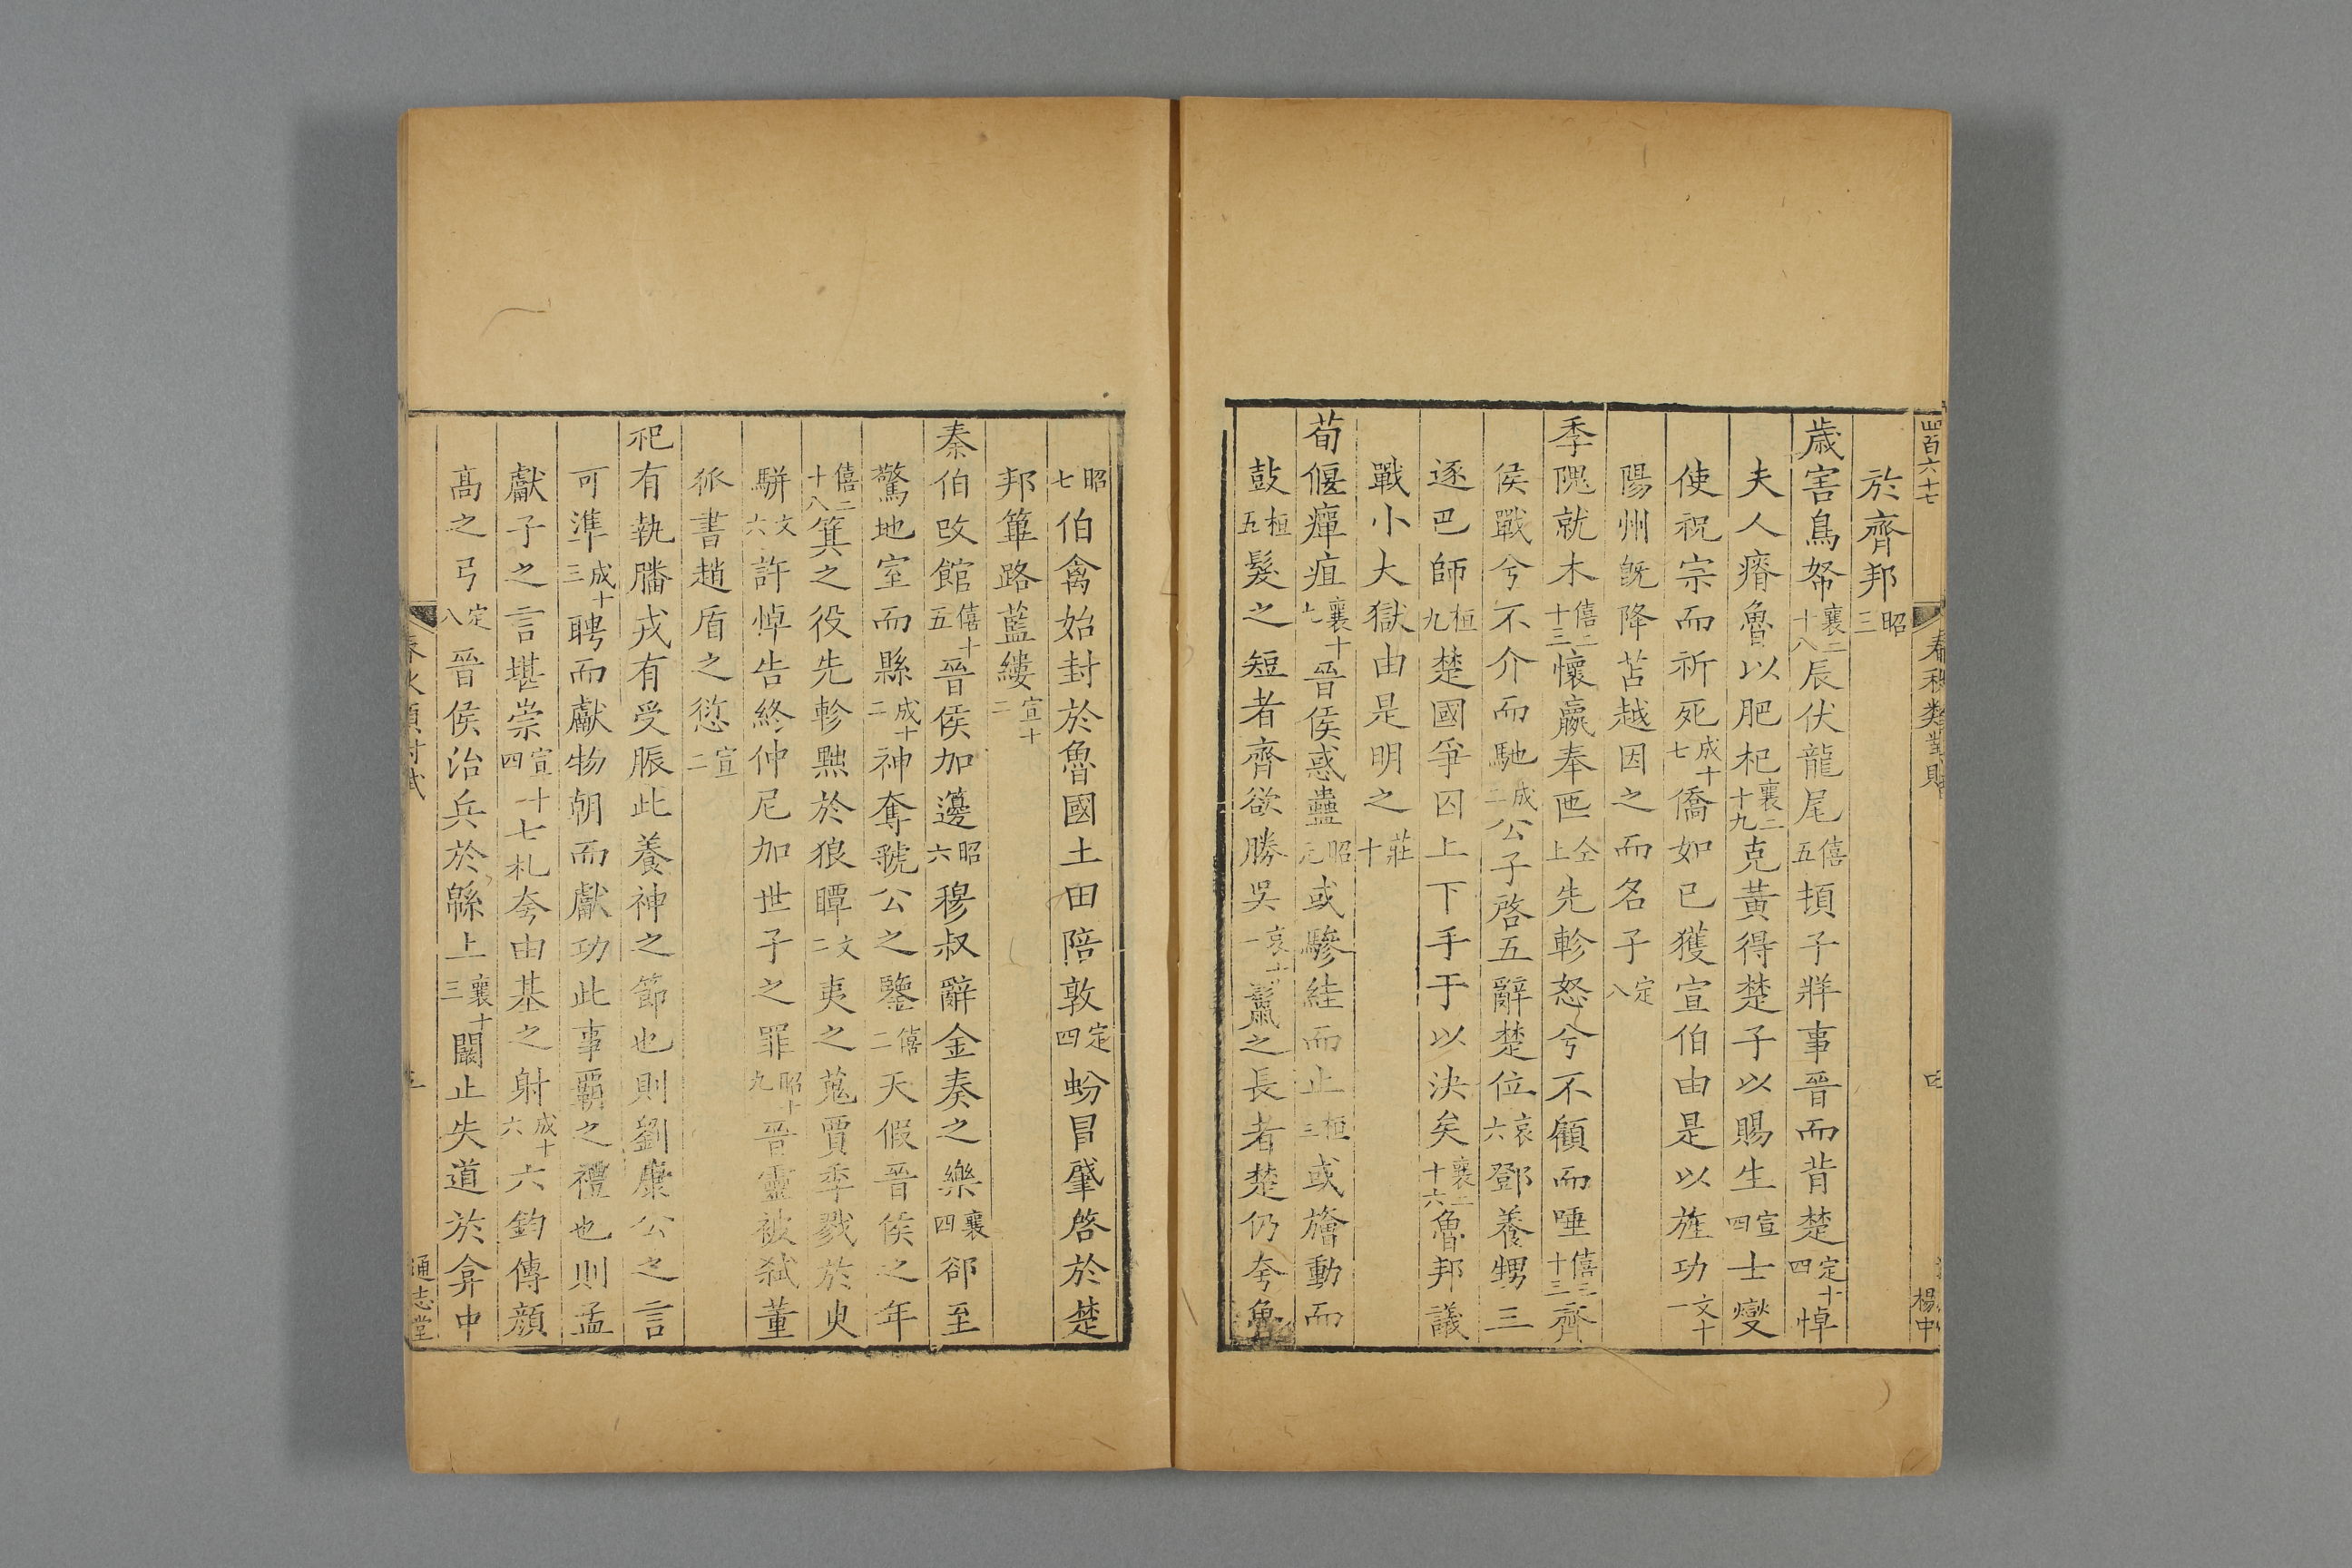 四百六十七
春秋類對賦
楊中
於齊邦昭三
歲害鳥帑襄二十八辰伏龍尾僖五頓子牂事晉而背楚定十四悼
夫人瘠魯以肥杞襄二十九克黃得楚子以賜生宣四士燮
使祝宗而祈死成十七僑如已獲宣伯由是以旌功文十一
陽州旣降苫越因之而名子定八
季隗就木僖二十三懷嬴奉匜仝上先軫怒兮不顧而唾僖三十三齊
侯戰兮不介而馳成二公子啓五辭楚位哀六鄧養甥三
逐巴師桓九楚國爭囚上下手于以決矣襄二十六魯邦議
戰小大獄由是明之莊十
荀偃癉疽襄十九晉侯惑蠱昭元或驂絓而止桓三或旝動而
鼓桓五髮之短者齊欲勝吳哀十一鬣之長者楚仍夸魯
昭七伯禽始封於魯國土田陪敦定四蚡冒肇啓於楚
邦篳路藍縷宣十二
秦伯改館僖十五晉侯加籩昭六穆叔辭金奏之樂襄四郤至
驚地室而縣成十二神奪虢公之鑒僖二天假晉侯之年
僖二十八箕之役先軫黜於狼瞫文二夷之蒐賈季戮於臾
騈文六許悼告終仲尼加世子之罪昭十九晉靈被弑董
狐書趙盾之愆宣二
祀有執膰戎有受脤此養神之節也則劉康公之言
可準成十三聘而獻物朝而獻功此事霸之禮也則孟
獻子之言堪崇宣十四七札夸由基之射成十六六鈞傳顏
高之弓定八晉侯治兵於緜上襄十三闞止失道於弇中
通志堂